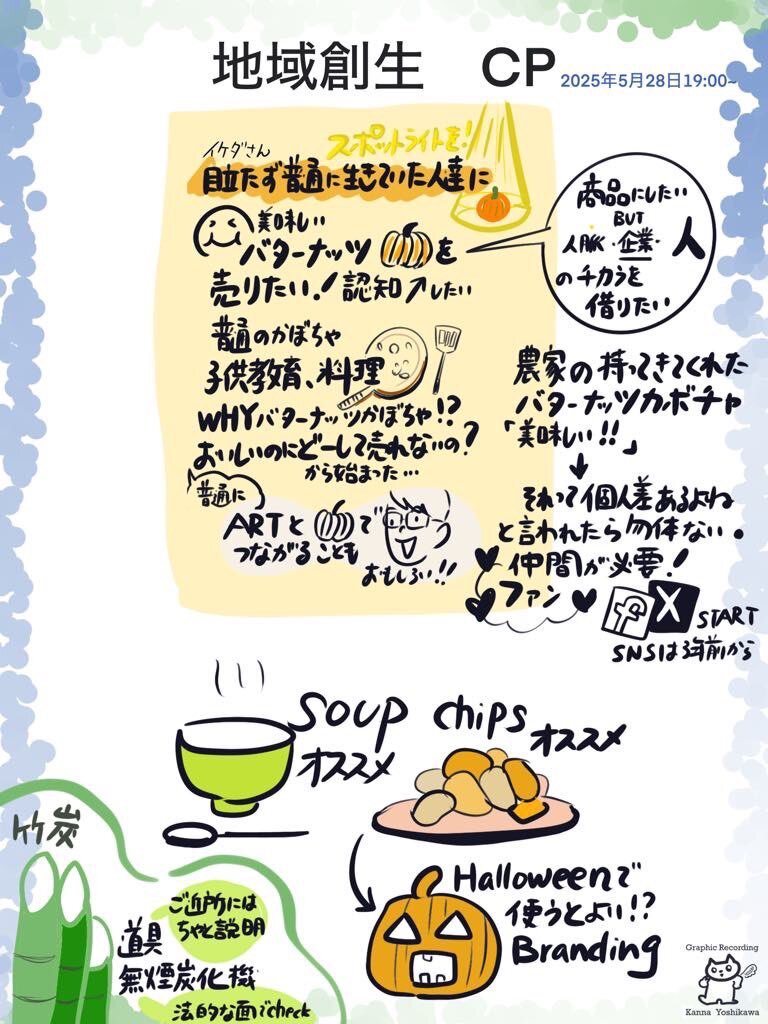 地域創生 CP
2025年5月28日19:00~
イケダさん
スポットライトを!
目立たず普通に生きていた人達に
美味しい
バターナッツ を
売りたい!認知↗したい
商品にしたい
BUT
人脈・企業・人
のチカラを
借りたい
普通のかぼちゃ
子供教育、料理
WHYバターナッツかぼちゃ!?
おいしいのにどーして売れないの?
から始まった…
普通に
ARTと で
つながることも
おもしろい!!
農家の持ってきてくれた
バターナッツカボチャ
「美味しい!!」
↓
それって個人差あるよね
と言われたら勿体ない。
仲間が必要!
ファン
f X START
SNSは3年前から
soup オススメ
chips オススメ
Halloweenで
使うとよい!?
Branding
竹炭
ご近所には
ちゃと説明
道具
無煙炭化機
法的な面でcheck
Graphic Recording
Kanna Yoshikawa